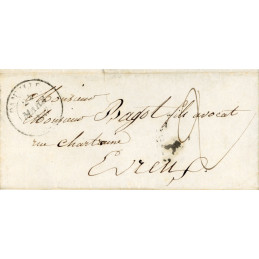 Monsieur
Monsieur Bagot fils avocat
rue chartraine
Evreux